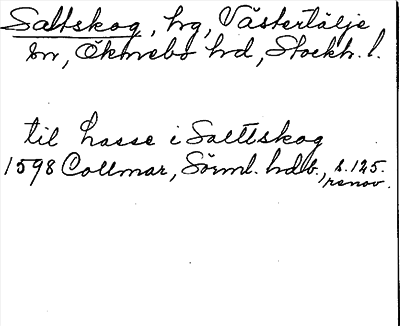 Saltskog, hg, Västertälje
sn, Öknebo hd, Stockh. l.
til Lasse i Salttskog
1598 Collmar, Sörml. hdb., s. 125.
renov.